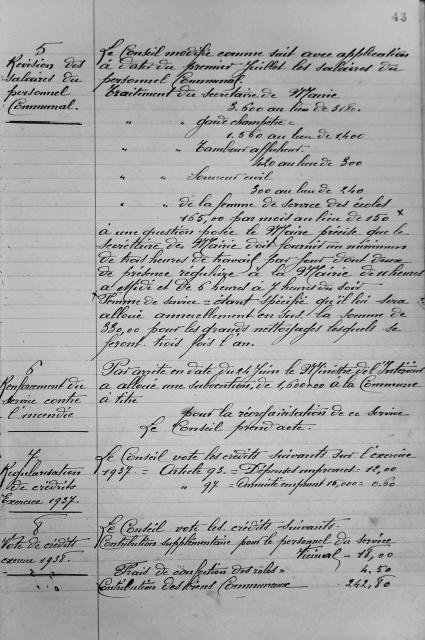 43
5
Révision des
salaires du
personnel
Communal.
Le Conseil modifie comme suit avec application
à date du premier Juillet les salaires du
personnel Communal.
Traitement du secrétaire de Mairie
3.600 au lieu de 3180.
" " garde champêtre =
1.560 au lieu de 1400
" " Tambour afficheur.
420 au lieu de 300
" " Sonneur civil
300 au lieu de 240
" " de la femme de service des écoles
165,00 par mois au lieu de 150 x
à une question posée le Maire précise que le
secrétaire de Mairie doit fournir un minimum
de trois heures de travail par jour dont deux
de présence régulière à la Mairie
et de 6 heures à 7 heures du soir
x Femme de service = étant spécifié qu'il lui sera
alloué annuellement en sus la somme de
330,00 pour les grands nettoyages lesquels se
feront trois fois l'an.
6
Renforcement du
service contre
l'incendie
Par arrêté en date du 24 Juin le Ministre de l'Intérieur
a alloué une subvention de 1,600.00 à la Commune
à titre
pour la réorganisation de ce service
Le Conseil prend acte.
7
Régularisation
de crédits
Exercice 1937.
Le Conseil vote les crédits suivants sur l'exercice
1937. = Article 93. = Dépenses imprévues = 12,00
" 97 = Annuité emprunt 15,000 = 0.60
8
Vote de crédits
exercice 1938.
Le Conseil vote les crédits suivants.
Contribution supplémentaire pour le personnel du service
Vicinal = 18,00
Frais de confection des rôles = 4.50
Contribution des biens Communaux 242,80